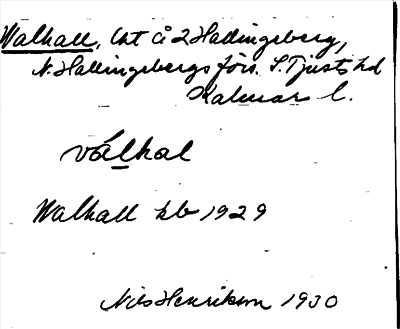 Walhall, lht å 2 Hallingeberg,
N. Hallingebergs förs. S. Tjusts hd
Kalmar l.
válhal
Walhall kb 1929
Nils Henrikson 1930